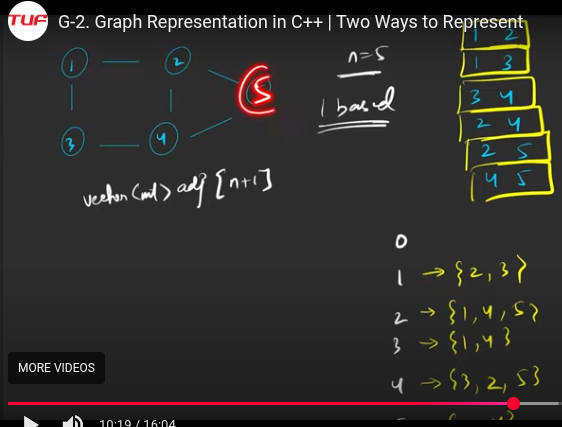 TUF G-2. Graph Representation in C++ | Two Ways to Represent
1 2
1 3
3 4
2 4
2 5
4 5
1 2 5
3 4
n=5
1 based
vector<int> adj [n+1]
0
1 → {2, 3}
2 → {1, 4, 5}
3 → {1, 4}
4 → {3, 2, 5}
MORE VIDEOS
10:19 / 16:04